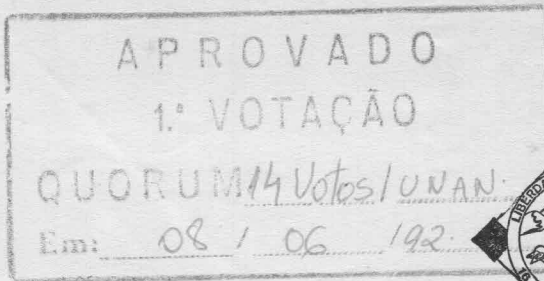 APROVADO
1.ª VOTAÇÃO
QUORUM 14 Votos / UNAN.
Em: 08 / 06 / 92.
LIBERD